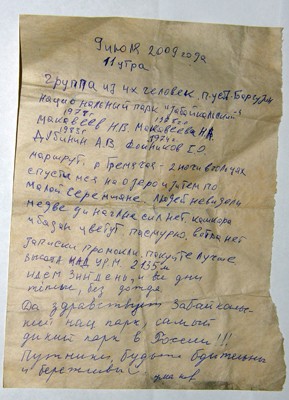 9 июля 2009 года
11 утра
группа из 4х человек, п. Усть-Баргузин
национальный парк "Забайкальский"
1974г 1985г
Макавеев Н.В. Макавеева Н.А.
1983г 1974г
Дубинин А.В. Ю.
маршрут: р. Громотуха - 2 ночи в кущах
спустимся на озеро и уйдем по
малой Черемшане. Людей не видели
медведи наглые сил нет кашкара
и бадан цветут пасмурно, ветра нет
Записки промокли, пакуйте лучше
высота над ур. м. 2135 м
идем 3й день, и все дни
теплые, без дождя
Да здравствует Забайкаль-
ский нац парк, самый
дикий парк в России!!!
Путники, будьте бдительны
и бережливы